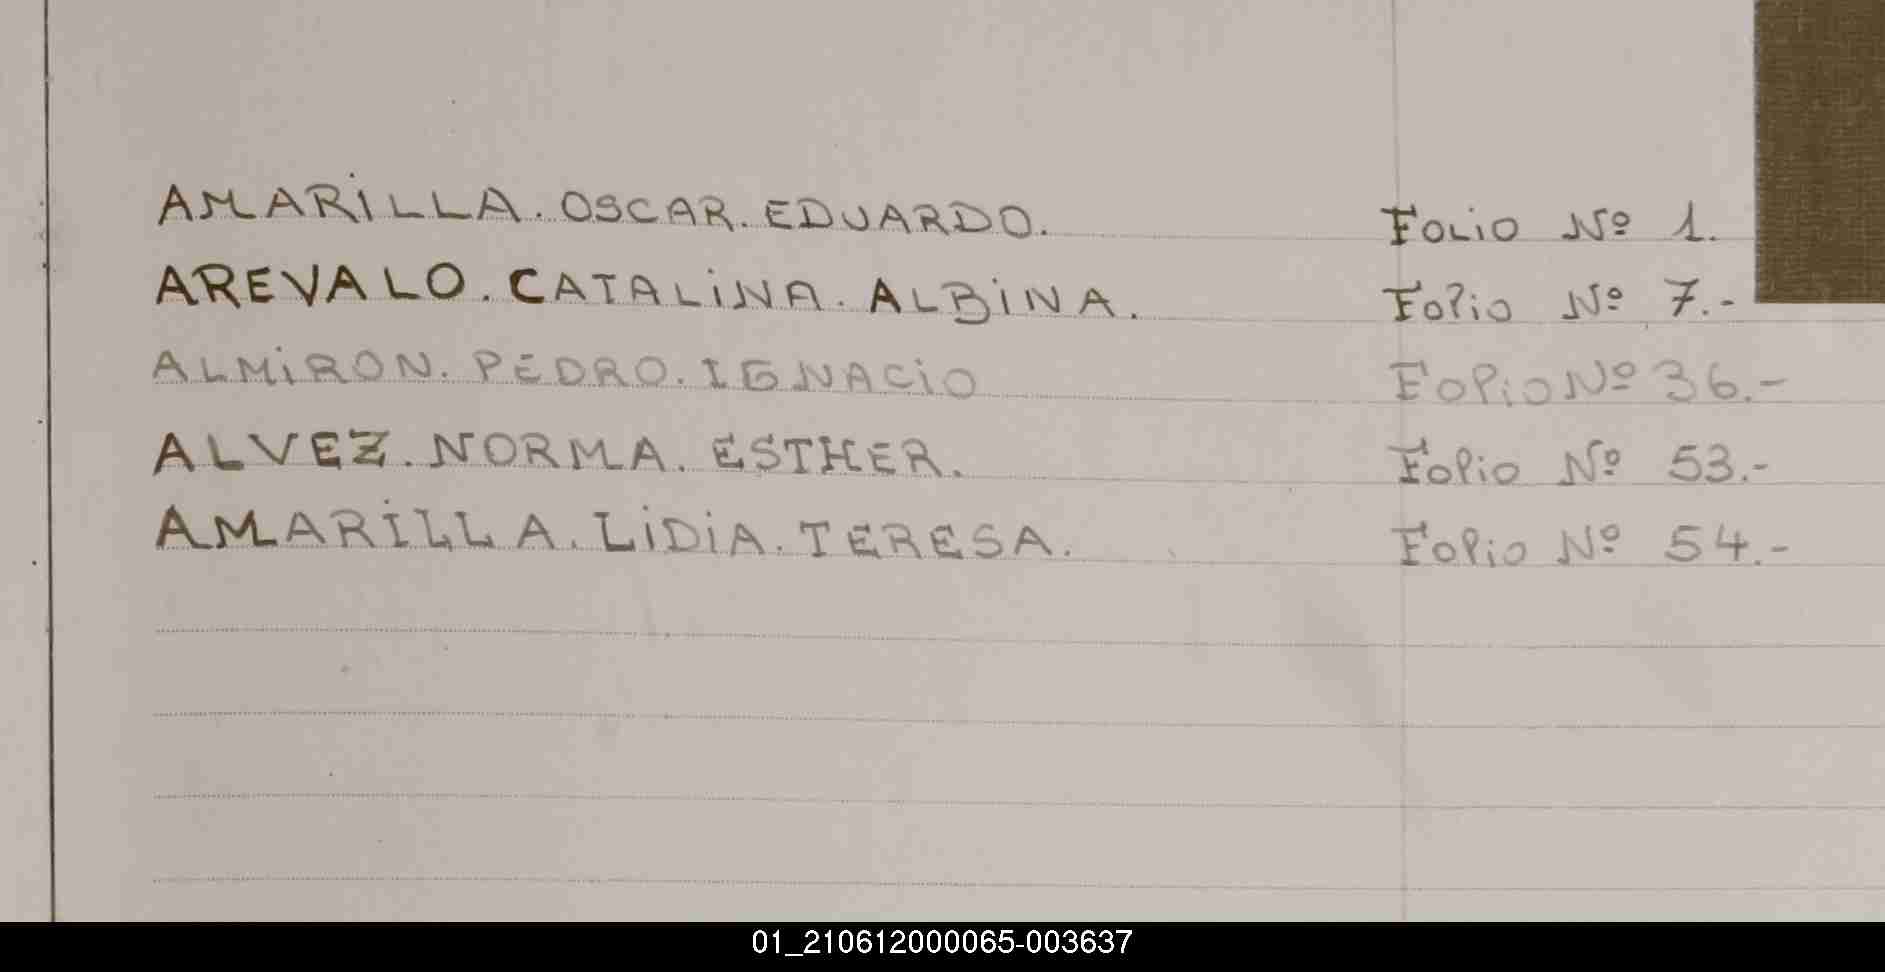 AMARiLLA. OSCAR. EDUARDO. FOLiO Nº 1.
AREVALO. CATALiNA. ALBiNA. Folio Nº 7.-
ALMiRON. PEDRO. IGNACiO Folio Nº 36.-
ALVEZ. NORMA. ESTHER. Folio Nº 53.-
AMARiLLA. LiDiA. TERESA. Folio Nº 54.-
01_210612000065-003637